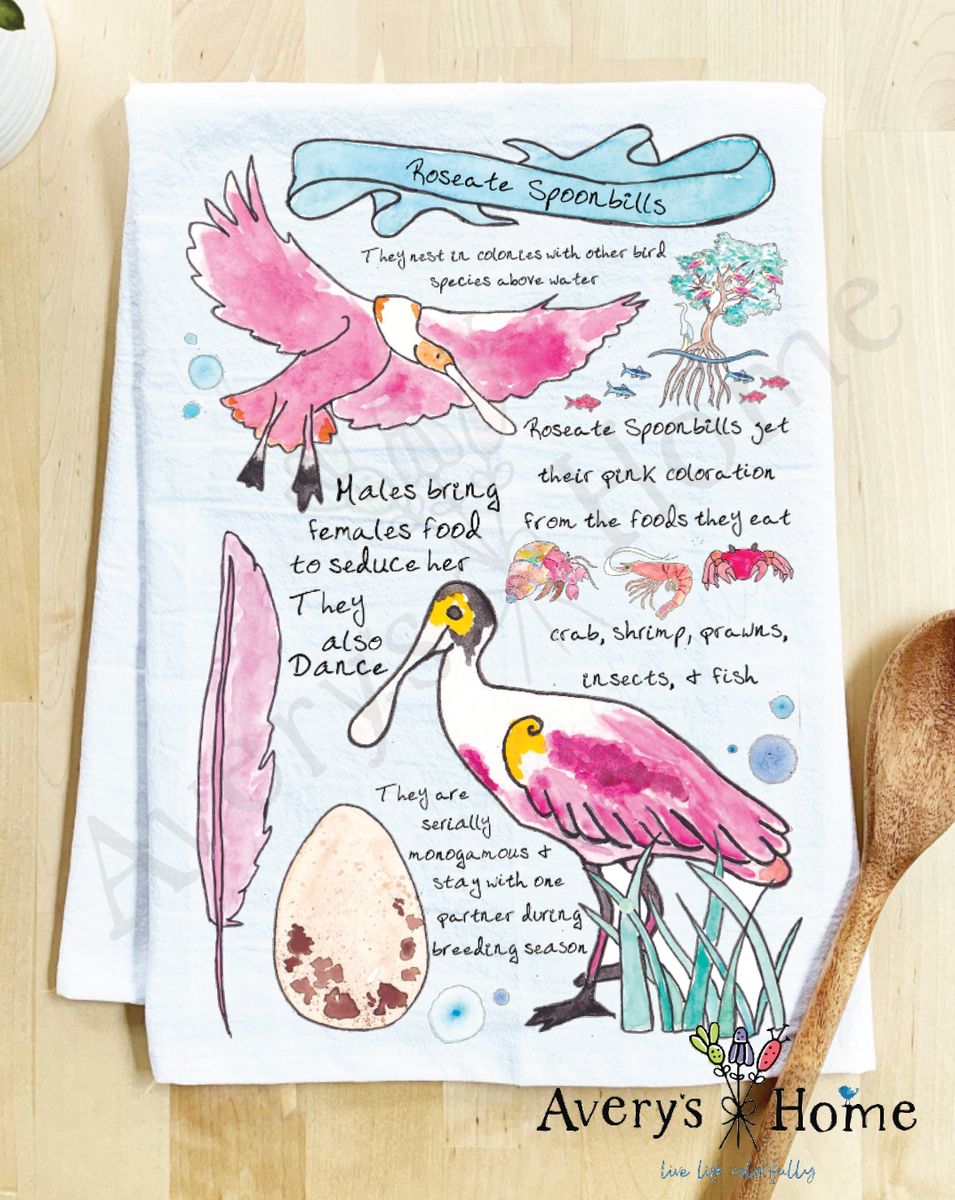 Roseate Spoonbills
They nest in colonies with other bird
species above water
Roseate Spoonbills get
their pink coloration
from the foods they eat
crab, shrimp, prawns,
insects, & fish
Males bring
females food
to seduce her
They
also
Dance
They are
serially
monogamous &
stay with one
partner during
breeding season
Avery's Home
Avery's Home
live life colorfully